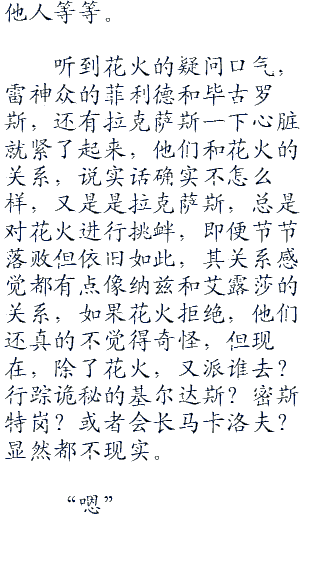 他人等等。
听到花火的疑问口气，
雷神众的菲利德和毕古罗
斯，还有拉克萨斯一下心脏
就紧了起来，他们和花火的
关系，说实话确实不怎么
样，又是是拉克萨斯，总是
对花火进行挑衅，即便节节
落败但依旧如此，其关系感
觉都有点像纳兹和艾露莎的
关系，如果花火拒绝，他们
还真的不觉得奇怪，但现
在，除了花火，又派谁去？
行踪诡秘的基尔达斯？密斯
特岗？或者会长马卡洛夫？
显然都不现实。
“嗯”